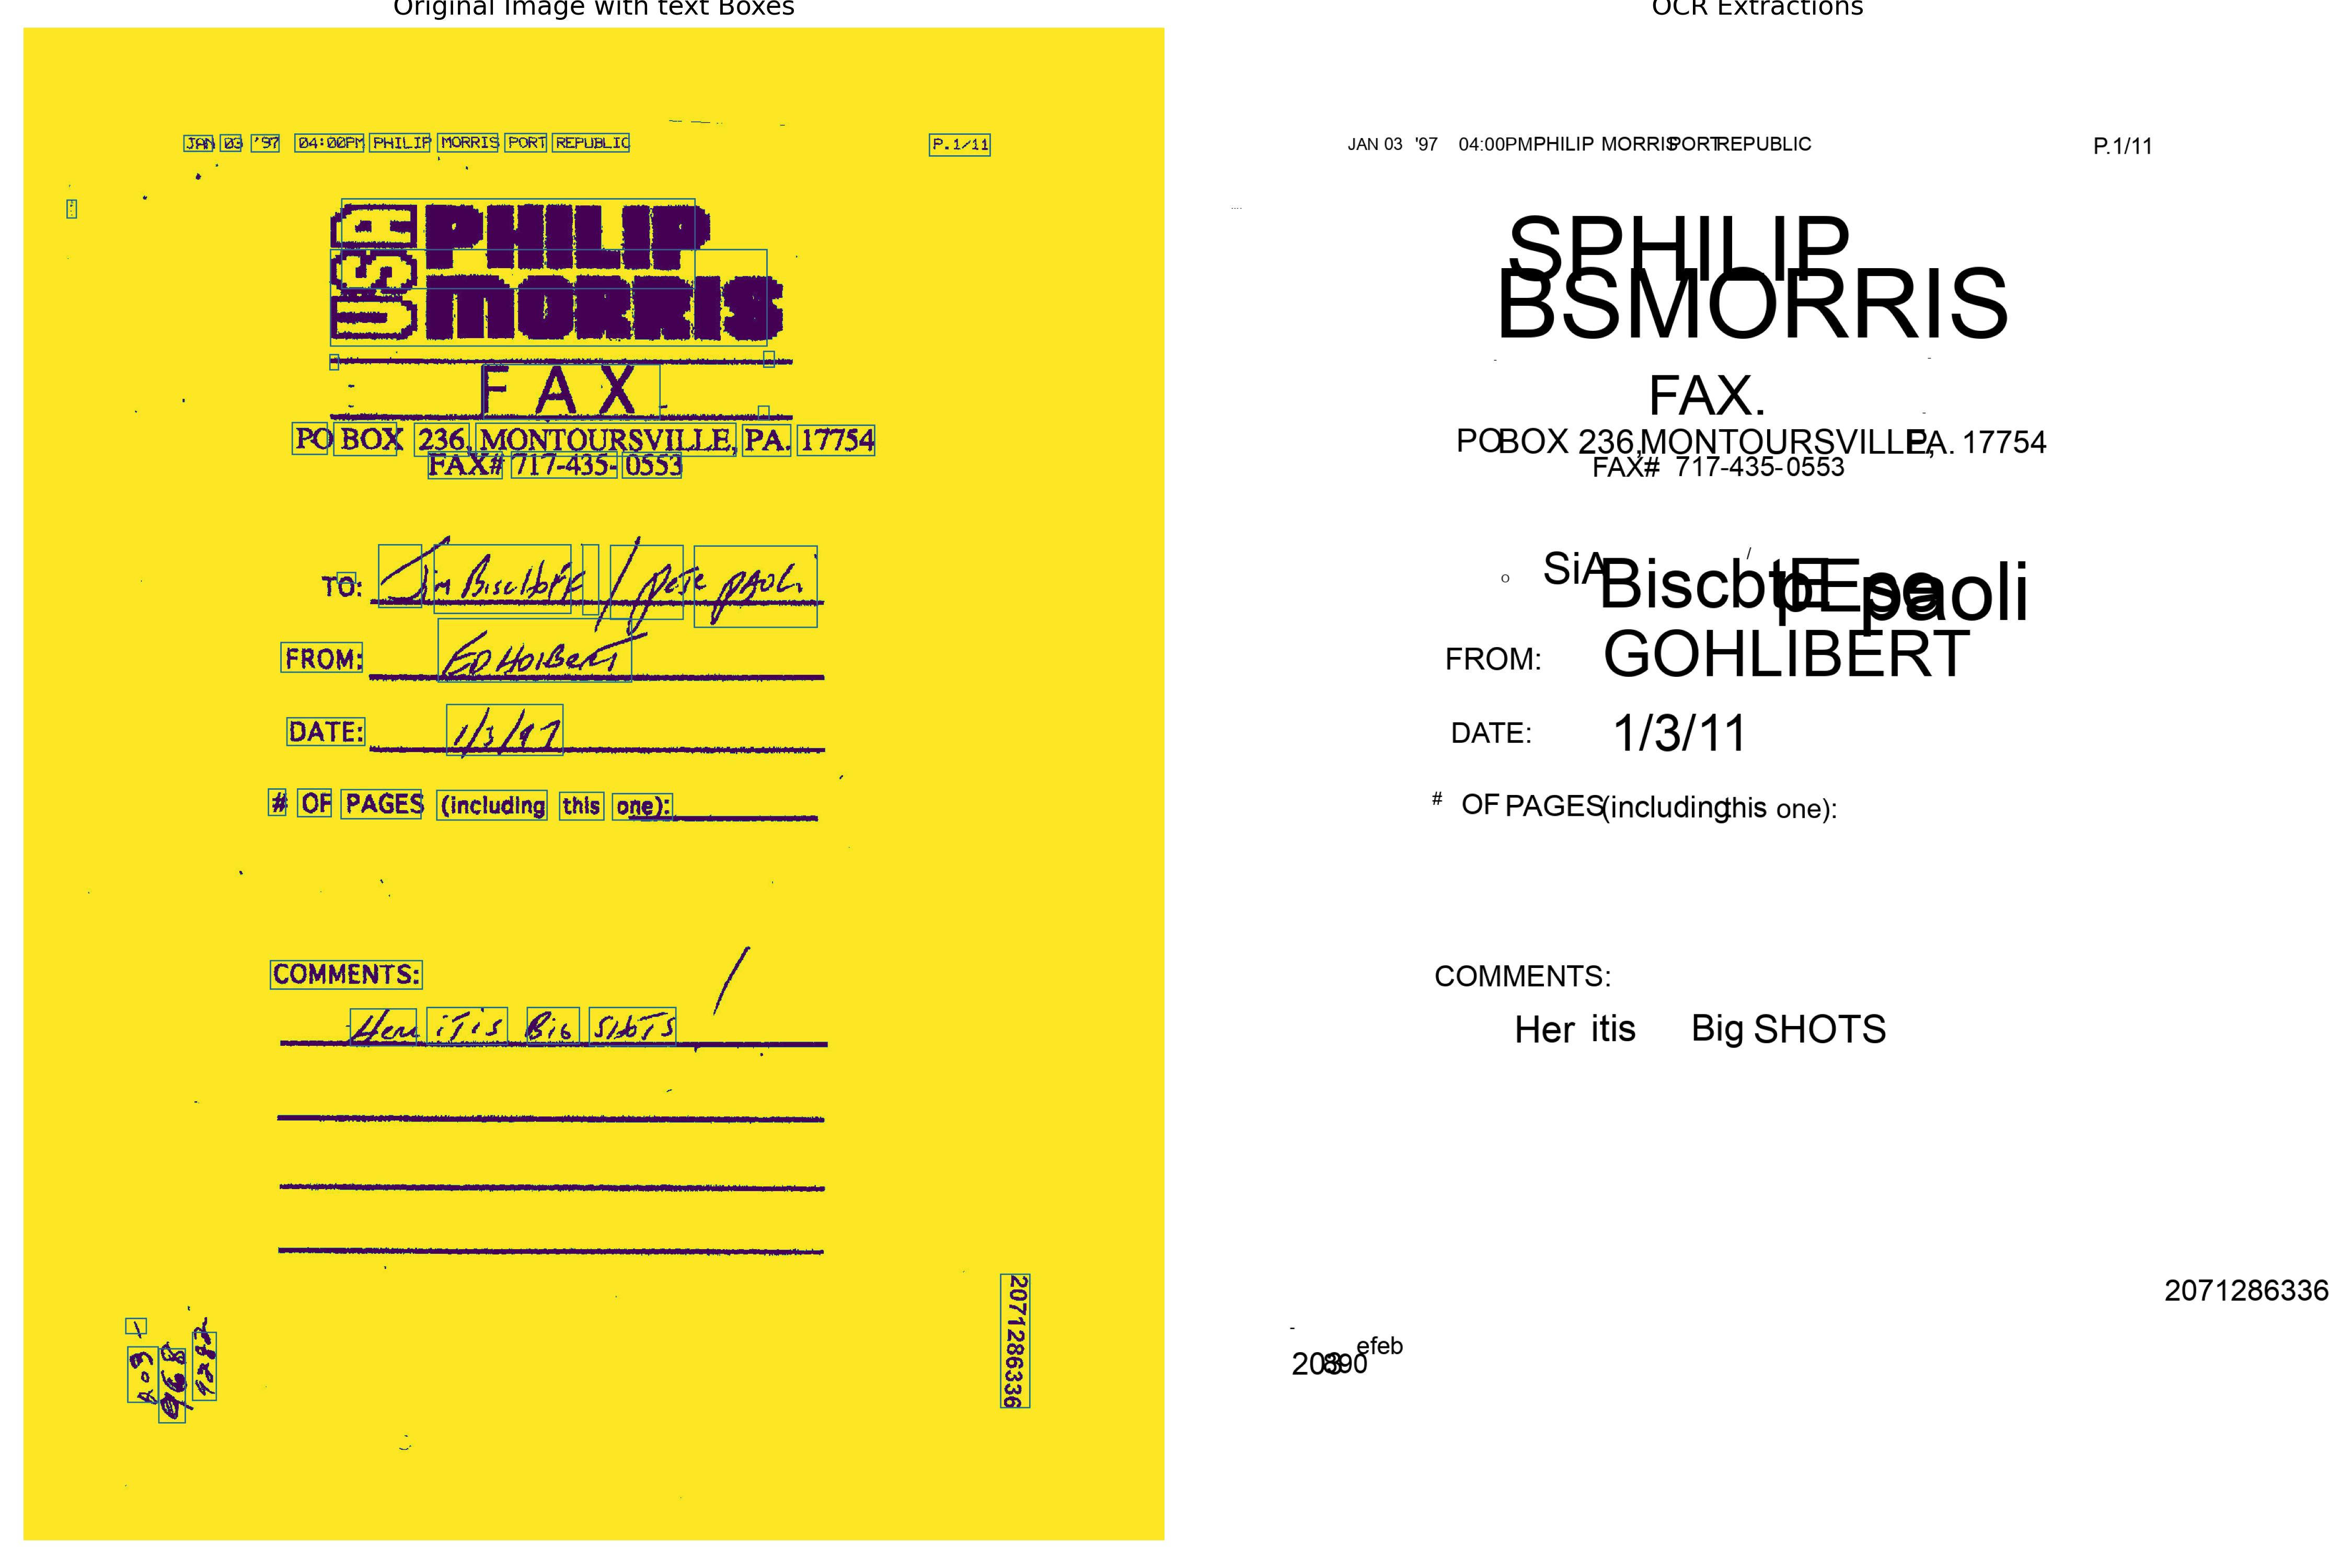 Original Image with text Boxes
JAN 03 '97 04:00PM PHILIP MORRIS PORT REPUBLIC P.1/11
USA
PHILIP
MORRIS
FAX
PO BOX 236, MONTOURSVILLE, PA. 17754
FAX# 717-435-0553
TO: Jim Bischoff / pete pAoli
FROM: ED HolBerT
DATE: 1/3/97
# OF PAGES (including this one):
COMMENTS:
Here iT is Big SHOTS
2071286336
OCR Extractions
JAN 03 '97 04:00PM PHILIP MORRIS PORT REPUBLIC P.1/11
SPHILIP
BSMORRIS
FAX.
PO BOX 236, MONTOURSVILLE, PA. 17754
FAX# 717-435-0553
o SiA Biscbtt / pEse paoli
FROM: GOHLIBERT
DATE: 1/3/11
# OF PAGES (including this one):
COMMENTS:
Her itis Big SHOTS
2071286336
efeb
203 890